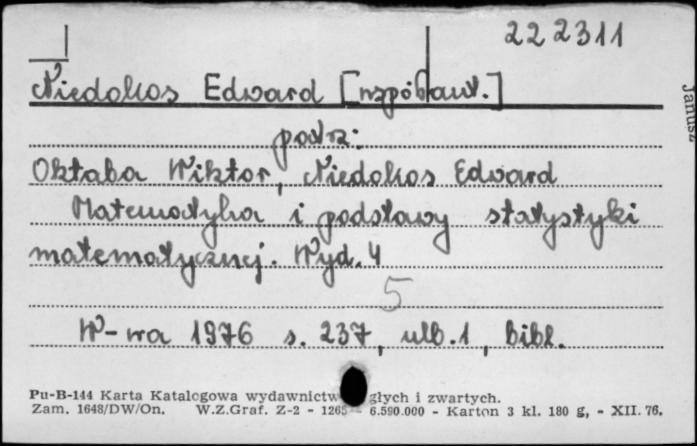 222311
Niedokos Edward [współaut.]
patrz:
Oktaba Wiktor, Niedokos Edward
Matematyka i podstawy statystyki
matematycznej. Wyd. 4
5
W-wa 1976 s. 237, ulb. 1, bibl.
Pu-B-144 Karta Katalogowa wydawnictw głych i zwartych.
Zam. 1648/DW/On. W.Z.Graf. Z-2 - 1265 - 6.590.000 - Karton 3 kl. 180 g, - XII. 76.
Janusz